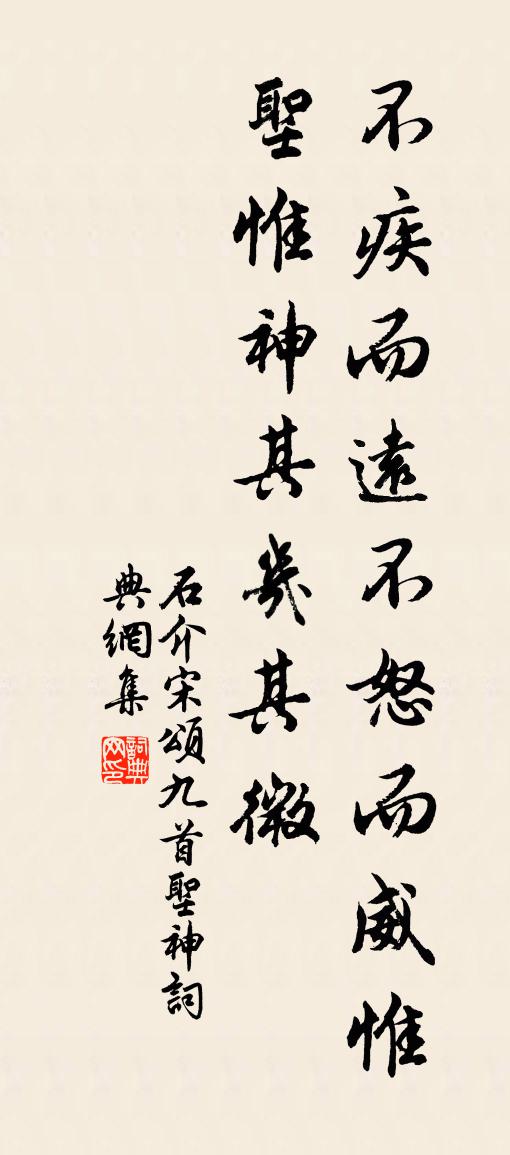 不疾而遠不怒而威惟
聖惟神其幾其微
石介宋頌九首聖神詞
典網集
詞典網印